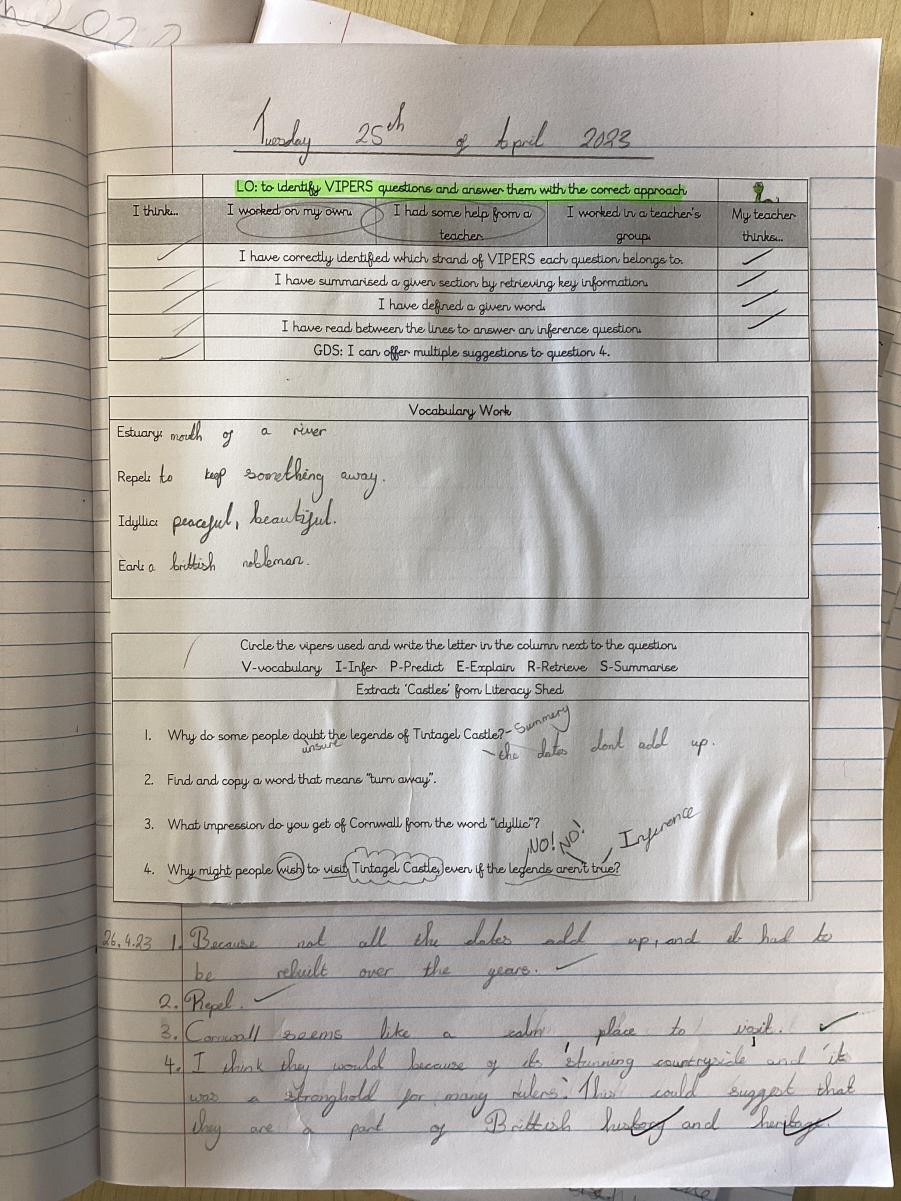 Tuesday 25th of April 2023
LO: to identify VIPERS questions and answer them with the correct approach
I think... I worked on my own. I had some help from a teacher. I worked in a teacher's group. My teacher thinks...
I have correctly identified which strand of VIPERS each question belongs to.
I have summarised a given section by retrieving key information.
I have defined a given word.
I have read between the lines to answer an inference question.
GDS: I can offer multiple suggestions to question 4.
Vocabulary Work
Estuary: mouth of a river
Repel: to keep something away.
Idyllic: peaceful, beautiful.
Earl: a brittish nobleman.
Circle the vipers used and write the letter in the column next to the question.
V-vocabulary I-Infer P-Predict E-Explain R-Retrieve S-Summarise
Extract: 'Castles' from Literacy Shed
1. Why do some people doubt the legends of Tintagel Castle? - Summery
unsure - the dates dont add up.
2. Find and copy a word that means "turn away".
3. What impression do you get of Cornwall from the word "idyllic"?
NO! NO! Inference
4. Why might people wish to visit Tintagel Castle, even if the legends aren't true?
26.4.23 1. Because not all the dates add up, and it had to
be rebuilt over the years.
2. Repel.
3. Cornwall seems like a calm place to visit.
4. I think they would because of its 'stunning countryside' and 'it
was a stronghold for many rulers.' This could suggest that
they are a part of Brittish history and heritage.